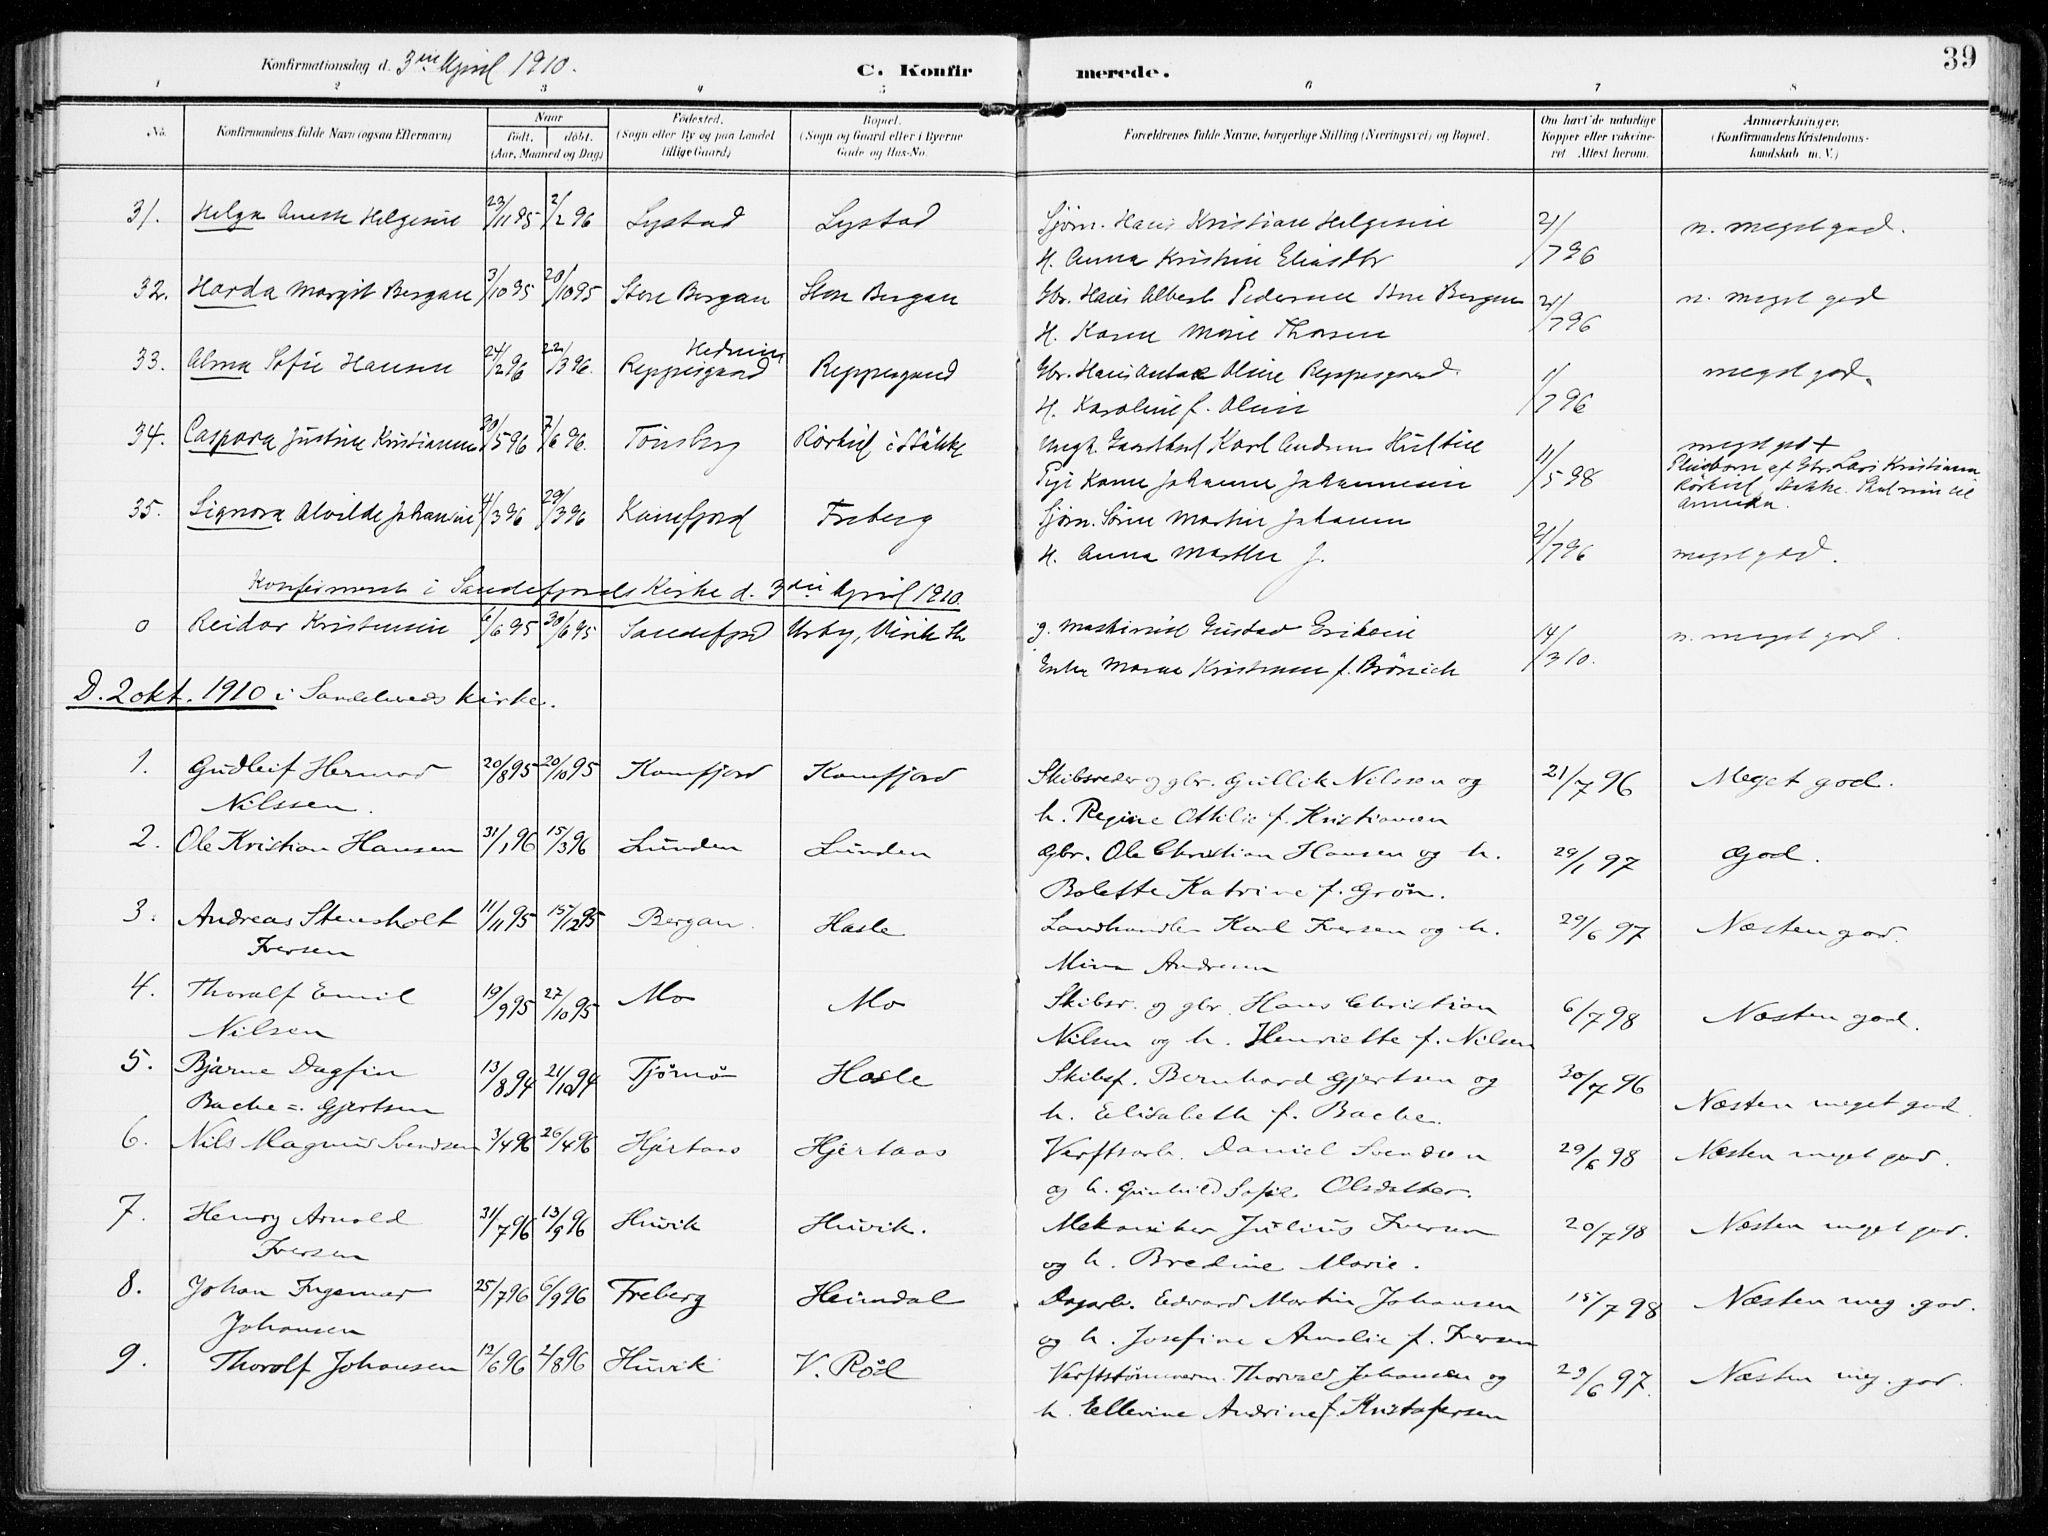 39
Konfirmationsdag d. 3die April 1910.
C. Konfirmerede.
1 2 3 4 5 6 7 8
No.
Konfirmandens fulde Navn (ogsaa Efternavn)
Naar
født. døbt.
(Aar, Maaned og Dag)
Fødested.
(Sogn eller By og paa Landet
tillige Gaard)
Bopæl.
(Sogn og Gaard eller i Byerne
Gade og Hus-No.
Forældrenes fulde Navne, borgerlige Stilling (Næringsvei) og Bopæl.
Om havt de naturlige
Kopper eller vakcine-
ret Attest herom.
Anmærkninger.
(Konfirmandens Kristendoms-
kundskab m. V.)
31. Helga Helgesen 23/11 95 2/2 96 Lystad Lystad Sjøm. Hans Kristian Helgesen 21/7 96 n. meget god.
H. Anna Kristine Eliasdtr
32. Harda Margit Bergan 3/10 95 20/10 95 Store Bergan Store Bergan Gbr. Hans Albert Pedersen Store Bergan 21/7 96 n. meget god
H. Karen Marie Thorsen
33. Alma Sofie Hansen 24/2 96 22/3 96. Hedrum Reppesgaard Reppesgaard Gbr. Hans Anton Olsen Reppesgaard. 1/7 96 meget god.
H. Karoline f. Olsen
34. Caspara Justine Kristiansen 30/5 96 7/6 96. Tønsberg Rørkil i Stokke Karl 11/5 98 meget god +
Pige Johanne Johannesen Pleiebarn af Gbr. Lars Kristiansen
Rørkil, Stokke.
35. Signora Alvilde Johansen 4/3 96 29/3 96 Kamfjord Freberg Sjøm. Søren Martin Johansen 21/7 96 meget god.
H. Anna Marthe J.
Konfirmeret i Sandefjords Kirke d. 3die April 1910.
0 Reidar Kristensen 6/6 95 30/6 95 Sandefjord g. Maskinist Gustav Eriksen 14/3 10. n. meget god.
Enke Kristensen f.
D. 2 okt. 1910 i Sandeherreds kirke.
1. Gudleif Hermod 20/8 95 20/10 95 Kamfjord Kamfjord Skibsreder og gbr. Gullik Nilssen og 21/7 96 Meget god.
Nilssen. h. Regine Ottilie f. Kristiansen
2. Ole Kristian Hansen 31/1 96 15/3 96 Lunden Lunden Gbr. Ole Christian Hansen og h. 29/1 97 God.
Bolette Katrine f. Grøn.
3. Andreas Stensholt 11/11 95 15/12 95 Bergan. Hasle Landhandler Karl Iversen og h. 29/6 97 Næsten god.
Iversen Mina Andersen
4. Thoralf Emil 19/9 95 27/10 95 Mo Mo Skibsr. og gbr. Hans Christian 6/7 98 Næsten god.
Nilsen Nilsen og h. Henriette f. Nilsen
5. Bjarne Dagfin 13/8 94 21/10 94 Tjømø Hasle Skibsf. Bernhard Gjertsen og 30/7 96 Næsten meget god.
Bache =. Gjertsen h. Elisabeth f. Bache.
6. Nils Magnus Svendsen 3/4 96 26/4 96 Hjertaas Hjertaas Verftsarb. Daniel Svendsen 29/6 98 Næsten meget god.
og h. Gunhild Sofie Olsdatter.
7. Henry Arnold 31/7 96 13/9 96 Huvik Huvik. Mekaniker Julius Iversen 20/7 98 Næsten meget god.
Iversen og h. Bredine Marie.
8. Johan Ingemar 25/7 96 6/9 96 Freberg Heimdal Dagarb. Edvard Martin Johansen 15/7 98 Næsten meg. god.
Johansen og h. Josefine Amalie f. Iversen
9. Thorolf Johansen 12/6 96 2/8 96 Huvik V. Rød Verftstømmerm. Thorvald Johansen og 29/6 97. Næsten meg. god.
h. Ellevine Andrine f. Kristofersen